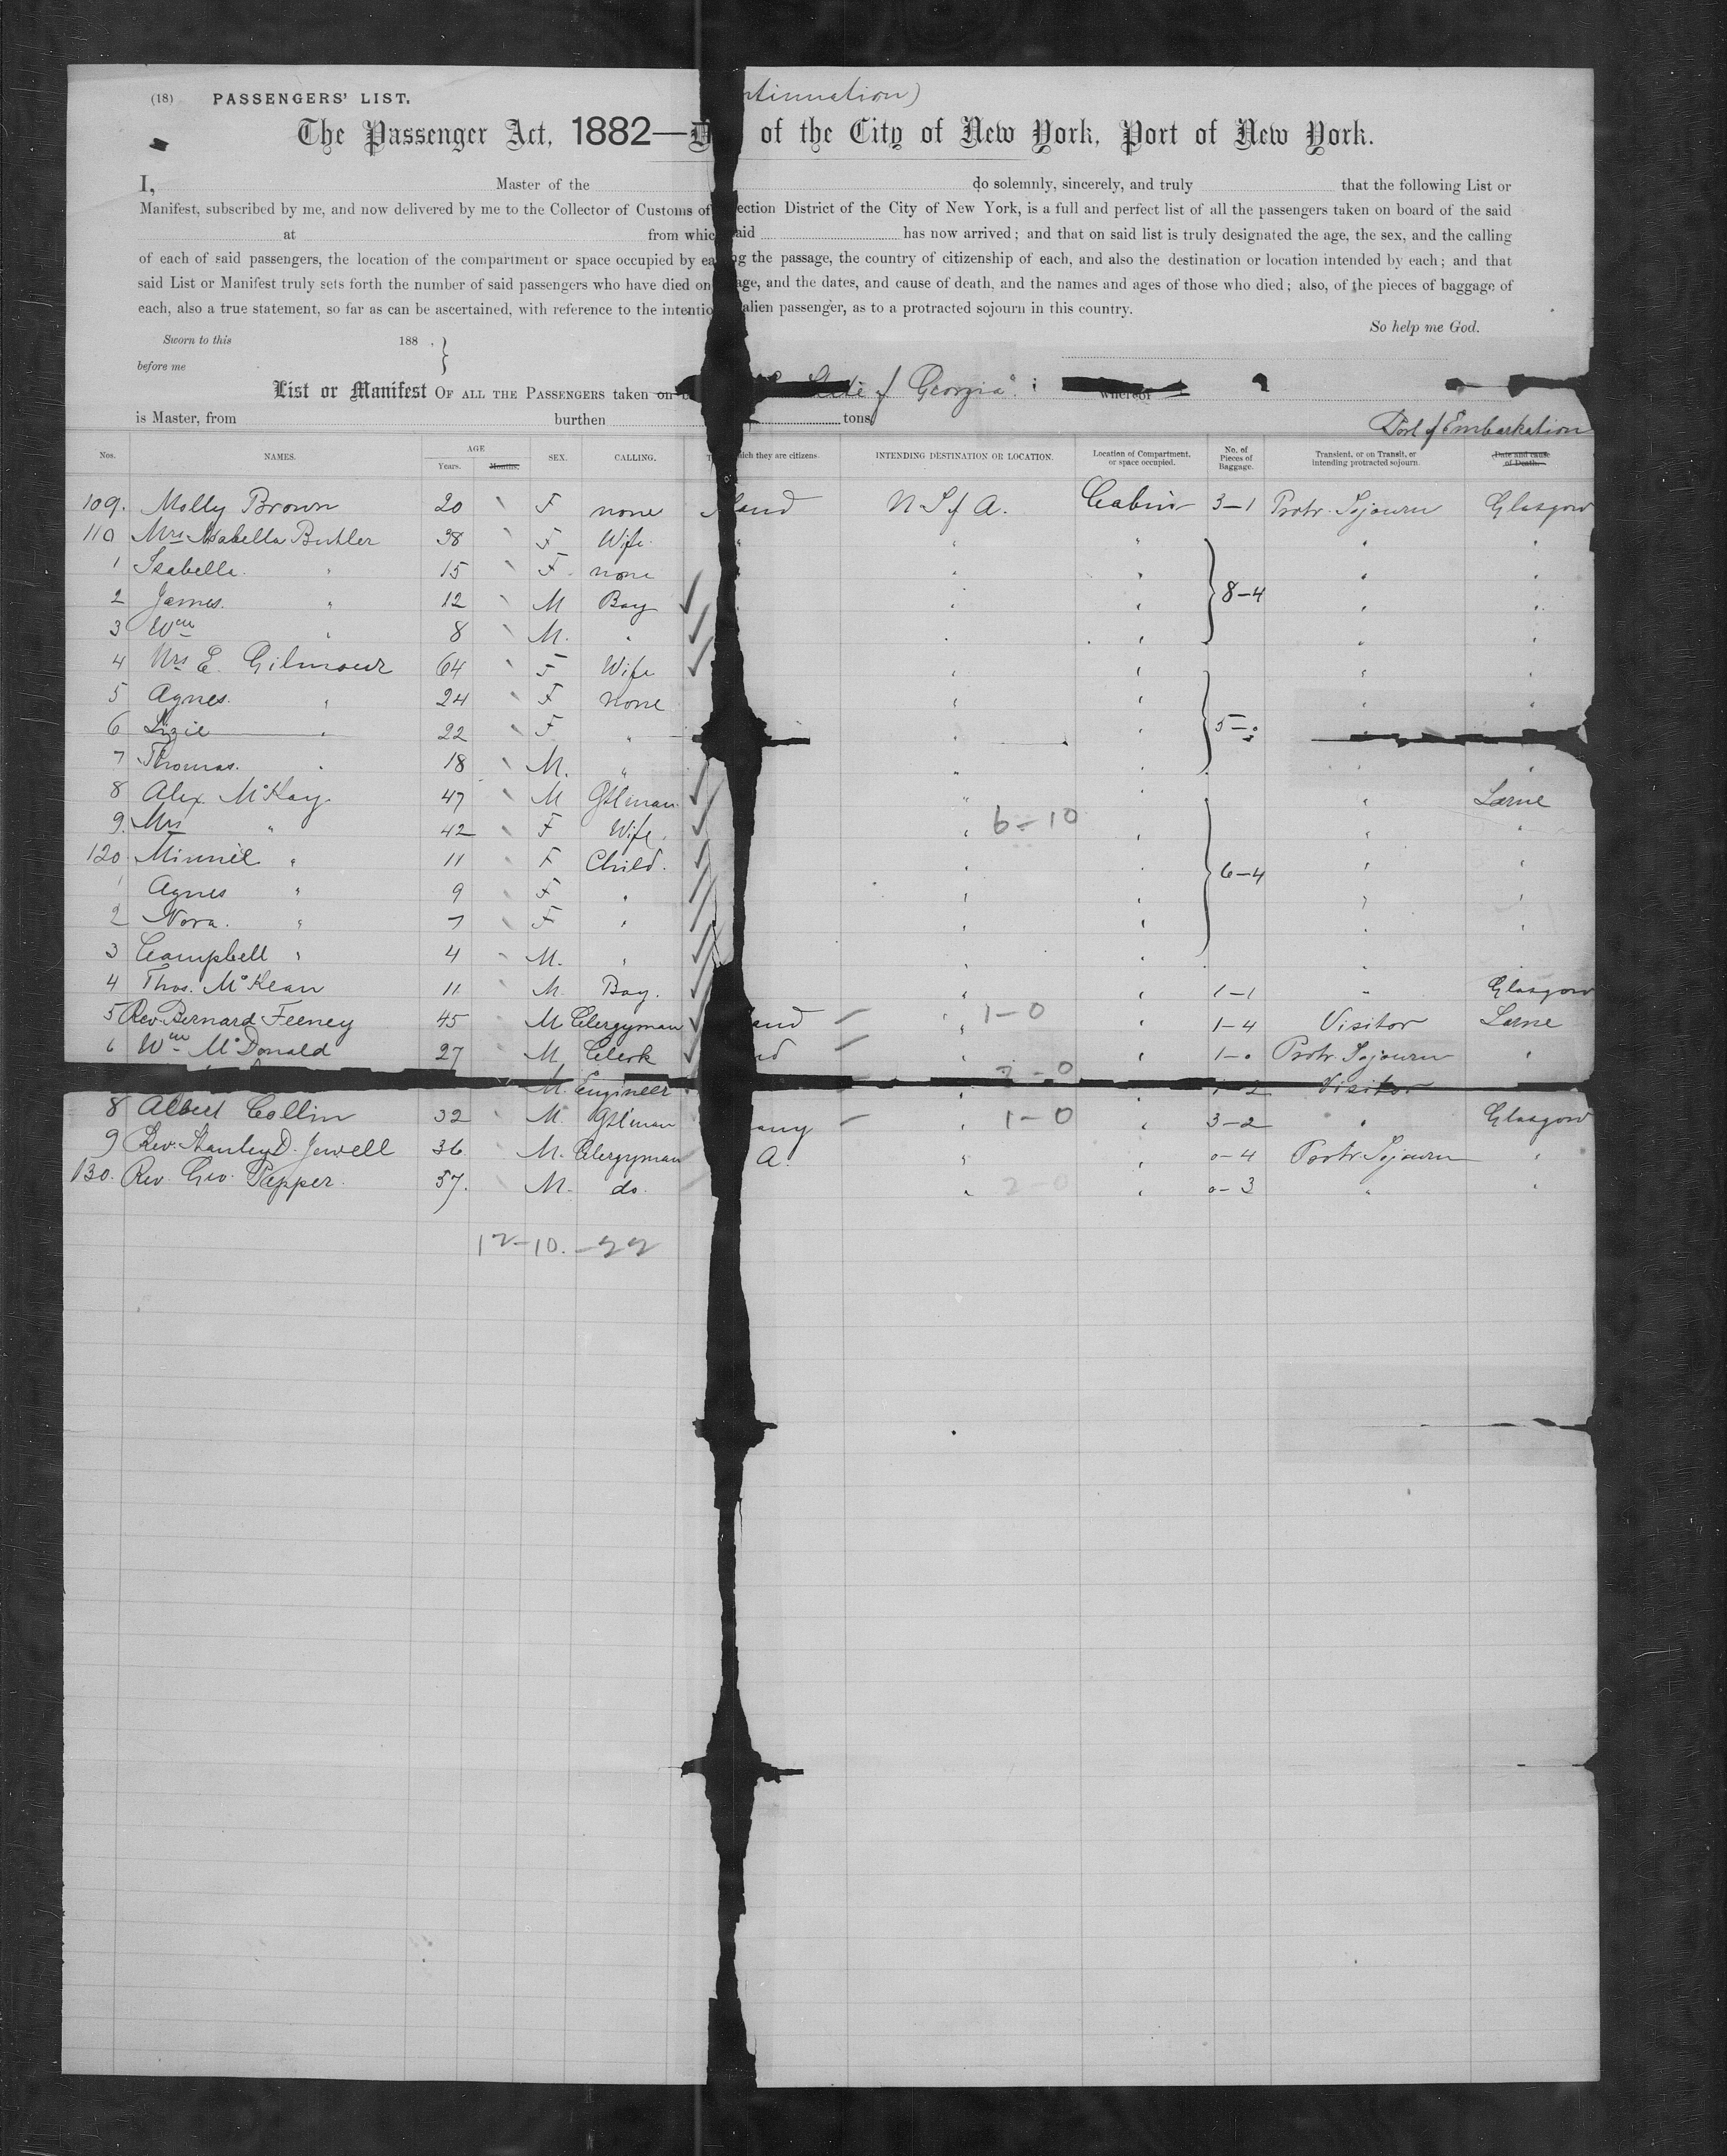 (18) PASSENGERS' LIST. ntinuation)
The Passenger Act, 1882—D of the City of New York, Port of New York.
I, Master of the do solemnly, sincerely, and truly that the following List or
Manifest, subscribed by me, and now delivered by me to the Collector of Customs of ection District of the City of New York, is a full and perfect list of all the passengers taken on board of the said
at from whic aid has now arrived; and that on said list is truly designated the age, the sex, and the calling
of each of said passengers, the location of the compartment or space occupied by ea ng the passage, the country of citizenship of each, and also the destination or location intended by each; and that
said List or Manifest truly sets forth the number of said passengers who have died on age, and the dates, and cause of death, and the names and ages of those who died; also, of the pieces of baggage of
each, also a true statement, so far as can be ascertained, with reference to the intentio alien passenger, as to a protracted sojourn in this country.
So help me God.
Sworn to this 188 .
before me
List or Manifest OF ALL THE PASSENGERS taken on State of Georgia" whereof
is Master, from burthen tons Port of Embarkation
Nos. NAMES. AGE Years. Months. SEX. CALLING. T ich they are citizens. INTENDING DESTINATION OR LOCATION. Location of Compartment, or space occupied. No. of Pieces of Baggage. Transient, or on Transit, or intending protracted sojourn. Date and cause of Death.
109. Molly Brown 20 " F none land U S of A. Cabin 3-1 Protr. Sojourn Glasgow
110 Mrs Isabella Butler 38 " F Wife " " " " "
1 Isabella " 15 " F none " " " "
2 James " 12 " M Boy " " 8-4 " "
3 Wm " 8 " M. " " " " "
4 Mrs E. Gilmour 64 " F Wife " " " "
5 Agnes " 24 " F none " " " "
6 Lizzie " 22 " F " " " 5-
7 Thomas " 18 " M. " " " " "
8 Alex McKay 47 " M Gtlman " " " Larne
9. Mrs " 42 " F Wife. " 6-10 " " "
120 Minnie " 11 " F Child. " " 6-4 " "
1 Agnes " 9 " F " " " " "
2 Nora. " 7 " F " " " " "
3 Campbell " 4 " M. " " " "
4 Thos. McKean 11 " M. Boy. " " 1-1 " Glasgow
5 Rev Bernard Feeney 45 M Clergyman and " 1-0 " 1-4 Visitor Larne
6 Wm McDonald 27 M. Clerk nd " " 1-0 Protr. Sojourn "
M. Engineer " 2-0 " 1-2 Visitor
8 Albert Collin 32 " M. Gtlman any " 1-0 " 3-2 " Glasgow
9 Rev. Stanley D. Jewell 36 M. Clergyman A. " " 0-4 Protr Sojourn "
130. Rev. Geo. Pepper 57. M. do. " 2-0 " 0-3 " "
12-10.-22